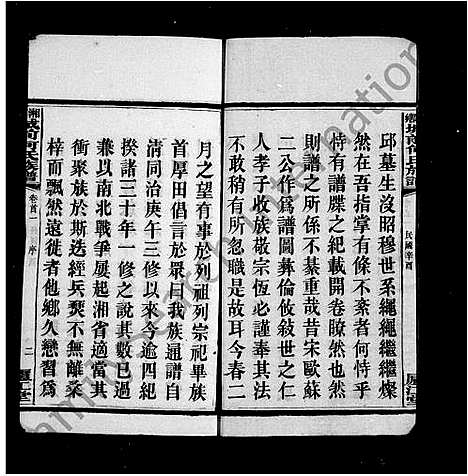 邱墓生沒昭穆世系繩繩繼繼燦
然在吾指掌有條不紊者何恃乎
恃有譜牒之紀載開卷瞭然也然
則譜之所係不綦重哉昔宋歐蘇
二公作為譜圖彝倫攸敘世之仁
人孝子收族敬宗恆必謹奉其法
而有所忽職是故耳今春二
民國辛酉
月之望有事於列祖列宗祀畢族
首厚田倡言於眾曰我族通譜自
清同治庚午三修以來今逾四紀
揆諸三十年一修之說其數已過
兼以南北戰爭屢起湘省適當其
衝聚族於斯迭經兵燹不無離棄
梓而飄然遠徙者他鄉久戀習為
卷首二
序
二